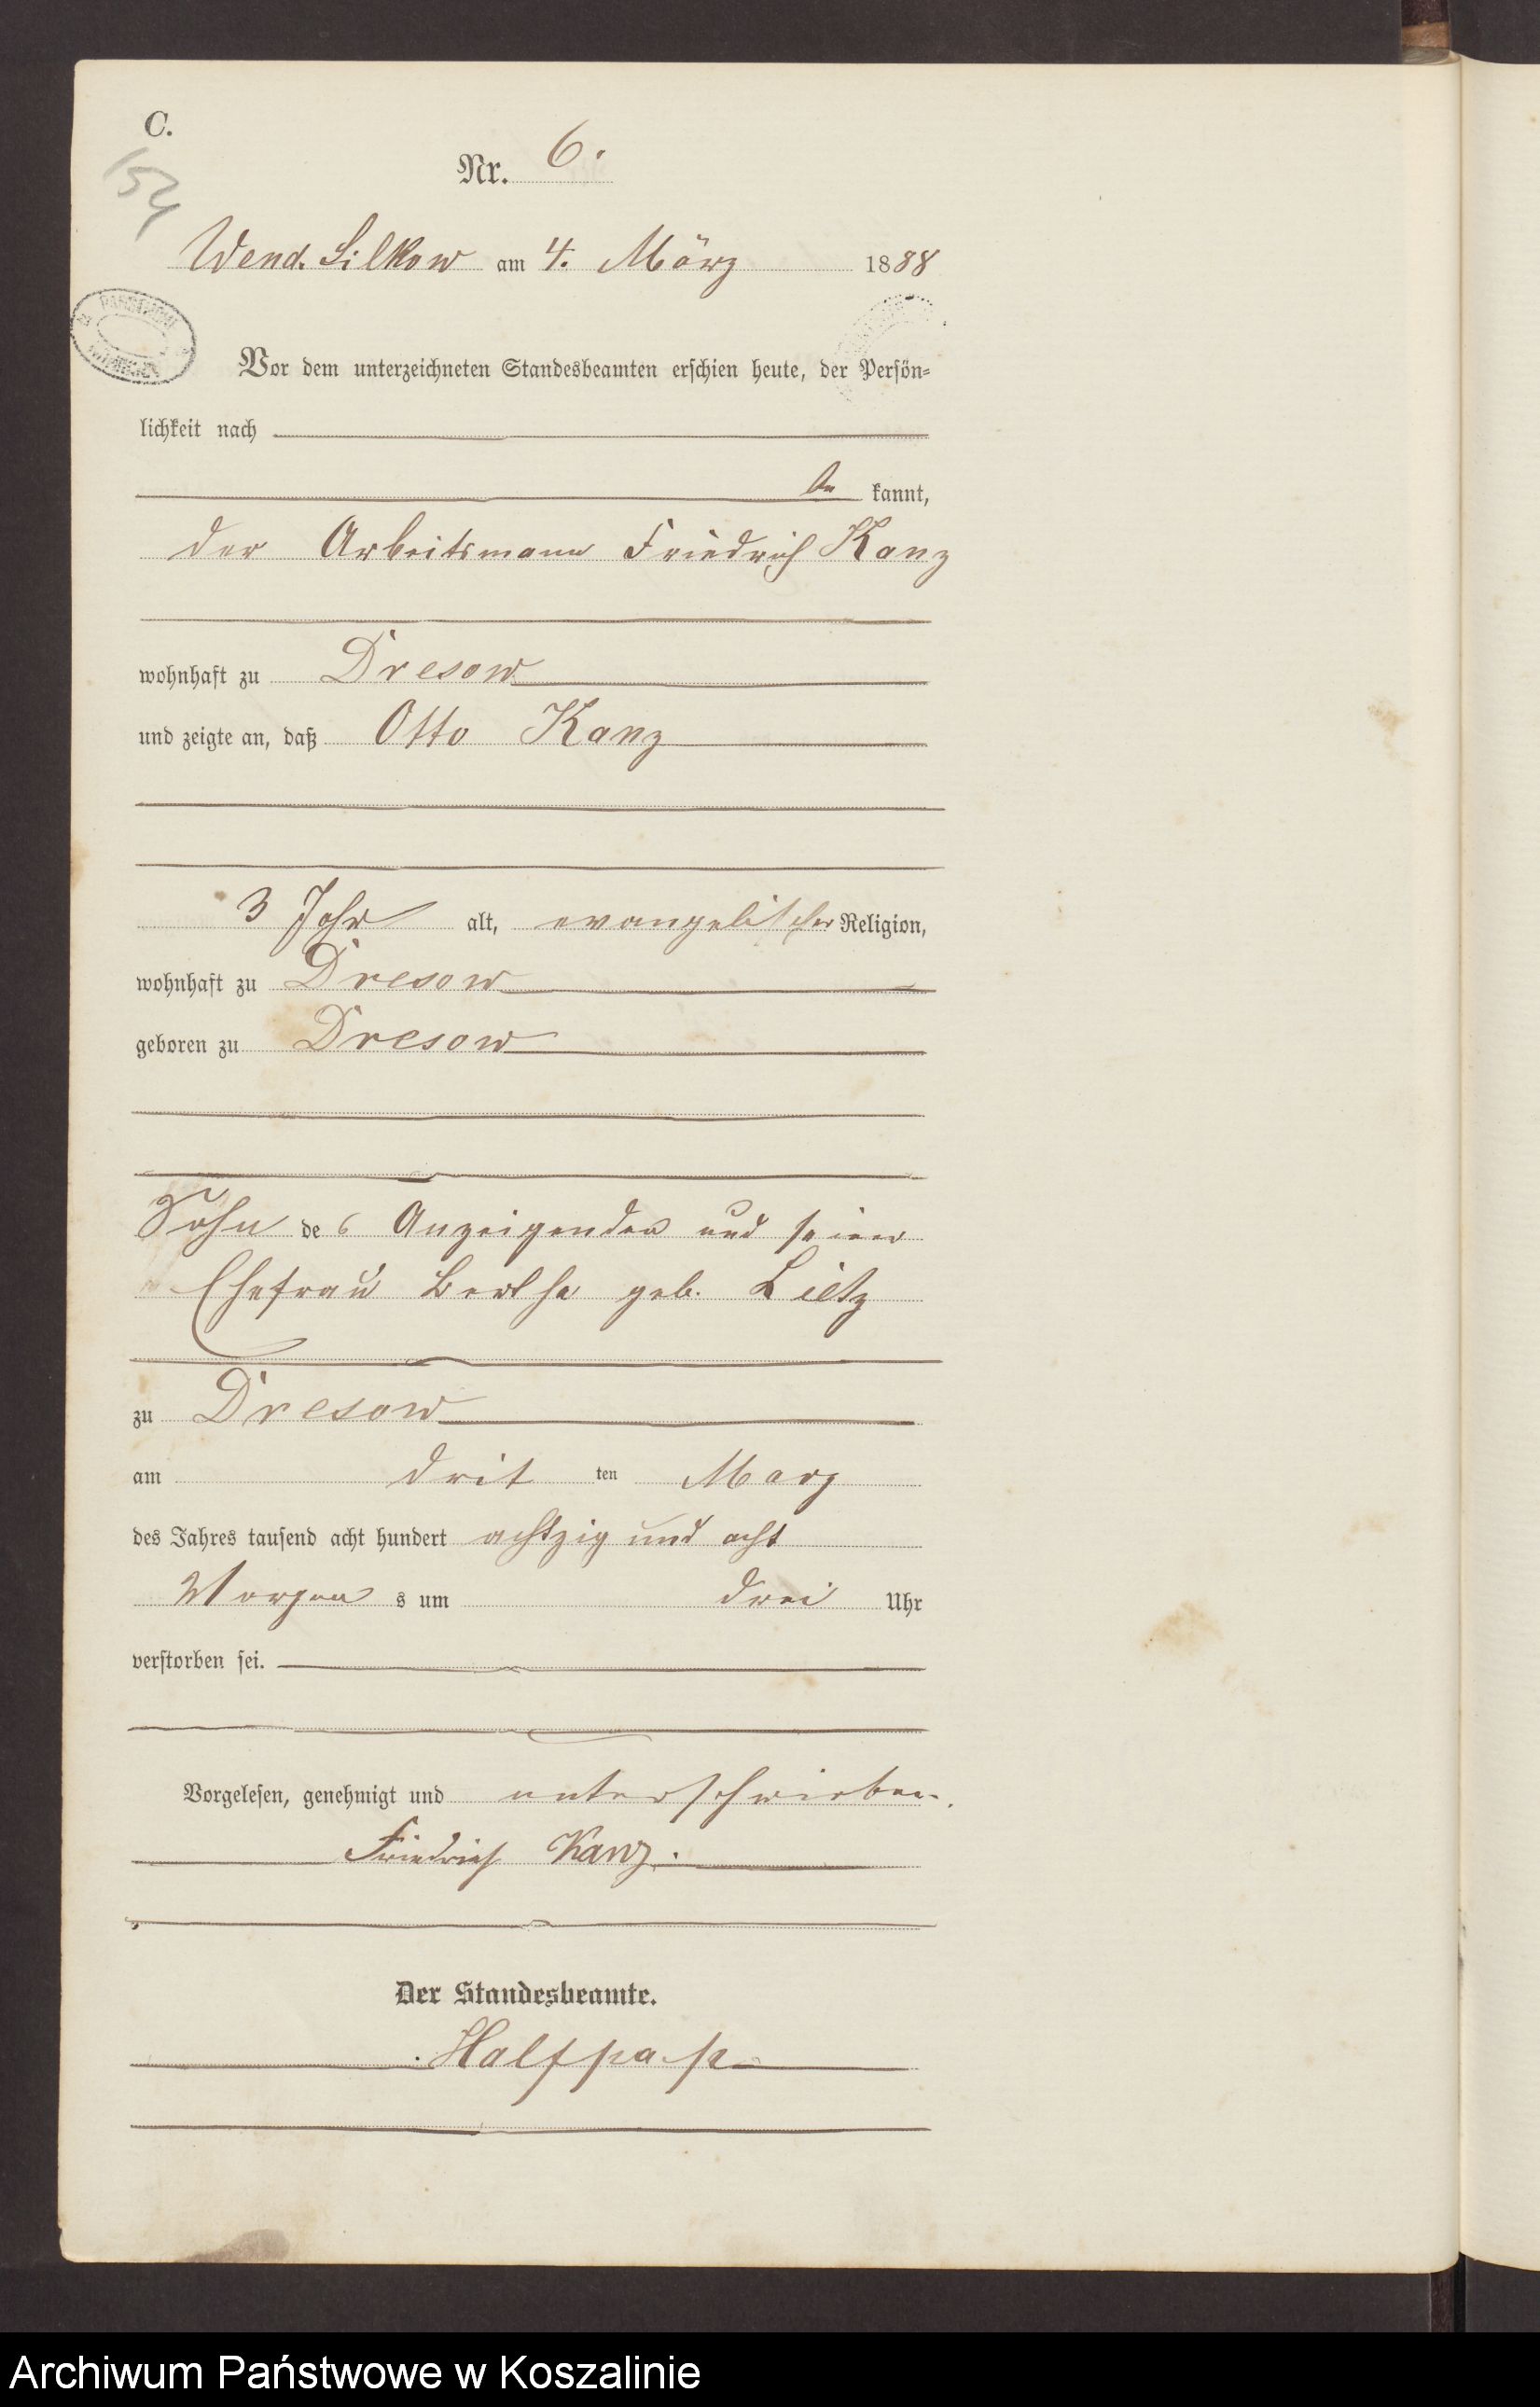 C.
154
Nr. 6.
Wend. Silkow am 4. März 1888
Vor dem unterzeichneten Standesbeamten erschien heute, der Persön-
lichkeit nach
be kannt,
der Arbeitsmann Friedrich Kanz
wohnhaft zu Dresow
und zeigte an, daß Otto Kanz
3 Jahr alt, evangelischer Religion,
wohnhaft zu Dresow
geboren zu Dresow
Sohn des Anzeigenden und seiner
Ehefrau Bertha geb. Lietz
zu Dresow
am drit ten Marz
des Jahres tausend acht hundert achtzig und acht
Morgen s um drei Uhr
verstorben sei.
Vorgelesen, genehmigt und unterschrieben.
Friedrich Kanz.
Der Standesbeamte.
Halfpap
Archiwum Państwowe w Koszalinie